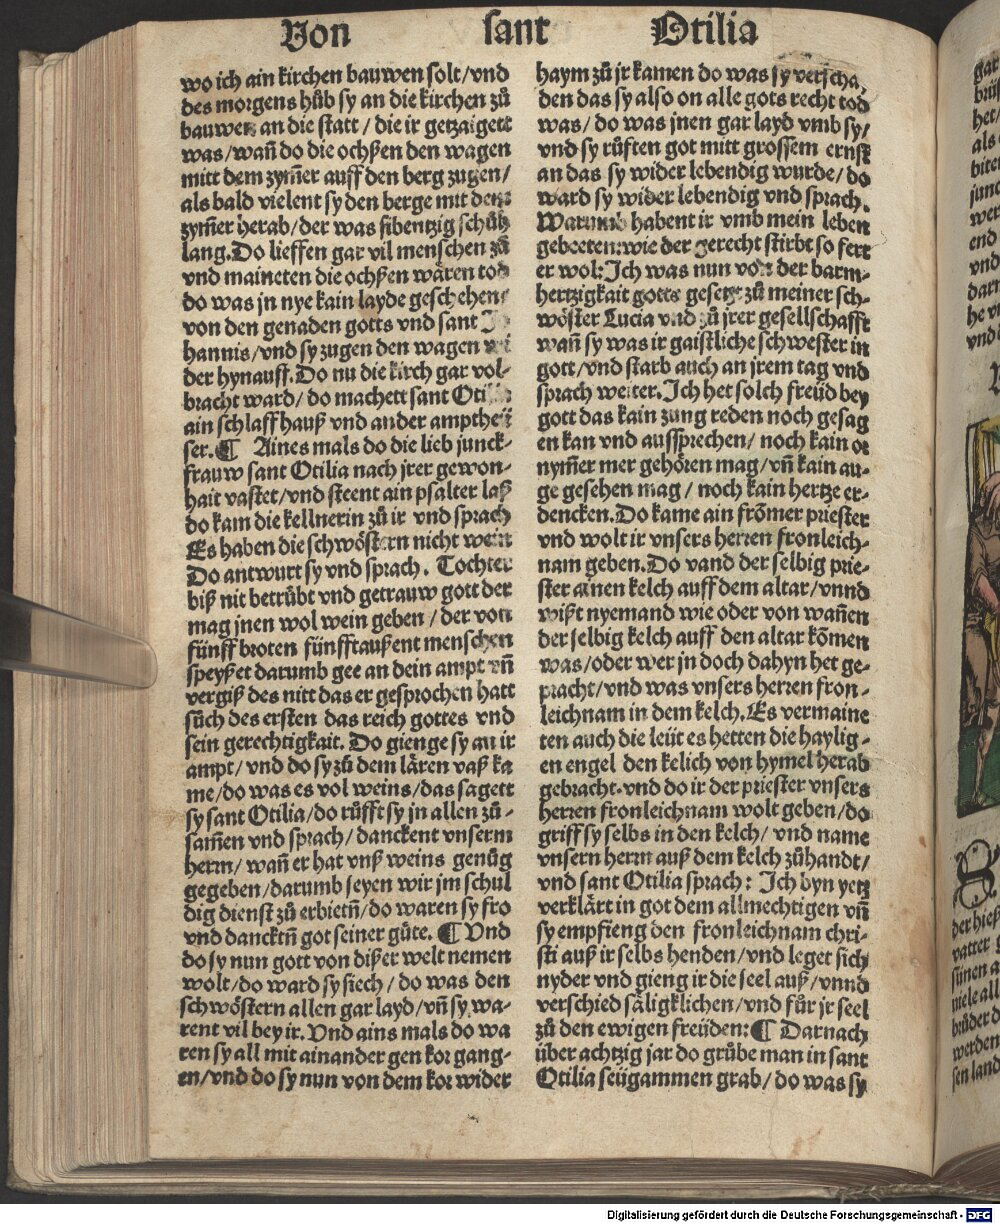 Von sant Otilia
wo ich ain kirchen bauwen solt/vnd
des morgens hůb sy an die kirchen zů
bauwen an die statt / die ir getzaigett
was/wañ do die ochßen den wagen
mitt dem zym̃er auff den berg zugen/
als bald vielent sy den berge mit dem
zym̃er herab/der was sibentzig schůh
lang. Do lieffen gar vil menschen zů
vnd maineten die ochßen wåren tod
do was jn nye kain layde geschehen
von den genaden gotts vnd sant Jo
hannis/vnd sy zugen den wagen wi
der hynauff. Do nu die kirch gar vol-
bracht ward/do machett sant Otilia
ain schlaffhauß vnd ander amptheü
ser. ¶ Aines mals do die lieb junck-
frauw sant Otilia nach jrer gewon-
hait vastet/vnd steent ain psalter laß
do kam die kellnerin zů ir vnd sprach
Es haben die schwöstern nicht wein
Do antwurt sy vnd sprach. Tochter
biß nit betrůbt vnd getrauw gott der
mag jnen wol wein geben/der von
fünff broten fünfftaußent menschen
speyßet darumb gee an dein ampt vñ
vergiß des nitt das er gesprochen hatt
sůch des ersten das reich gottes vnd
sein gerechtigkait. Do gienge sy an ir
ampt/ vnd do sy zů dem låren vaß ka
me/do was es vol weins/das sagett
sy sant Otilia/do růfft sy jn allen zů-
sam̃en vnd sprach/danckent vnserm
herrn/wañ er hat vnß weins genůg
gegeben/darumb seyen wir jm schul
dig dienst zů erbietñ/do waren sy fro
vnd dancktñ got seiner gůte. ¶ Vnd
do sy nun gott von dißer welt nemen
wolt/do ward sy siech/do was den
schwöstern allen gar layd/vñ sy wa-
rent vil bey ir. Vnd ains mals do wa
ren sy all mit ainander gen kor gang-
en/vnd do sy nun von dem kor wider
haym zů jr kamen do was sy verscha
den das sy also on alle gots recht tod
was/do was jnen gar layd vmb sy/
vnd sy růften got mitt grossem ernst
an das sy wider lebendig wurde/do
ward sy wider lebendig vnd sprach.
Warumb habent ir vmb mein leben
gebeeten: wie der gerecht stirbt so fert
er wol: Ich was nun von der barm-
hertzigkait gotts gesetzt zů meiner sch-
wöster Lucia vnd zů jrer gesellschafft
wañ sy was ir gaistliche schwester in
gott/vnd starb auch an jrem tag vnd
sprach weiter. Ich het solch freüd bey
gott das kain zung reden noch gesag
en kan vnd aussprechen/noch kain or
nym̃er mer gehören mag/vñ kain au-
ge gesehen mag/noch kain hertze er-
dencken. Do kame ain frömer priester
vnd wolt ir vnsers herren fronleich-
nam geben. Do vand der selbig prie-
ster ainen kelch auff dem altar/vnnd
wißt nyemand wie oder von wañen
der selbig kelch auff den altar kömen
was/oder wer jn doch dahyn het ge-
pracht/vnd was vnsers herren fron-
leichnam in dem kelch. Es vermaine
ten auch die leüt es hetten die haylig-
en engel den kelich von hymel herab
gebracht. vnd do ir der priester vnsers
herren fronleichnam wolt geben/do
griff sy selbs in den kelch/vnd name
vnsern herrn auß dem kelch zůhandt/
vnd sant Otilia sprach: Ich byn yetz
verklårt in got dem allmechtigen vñ
sy empfieng den fronleichnam chri-
sti auß ir selbs henden/vnd leget sich
nyder vnd gieng ir die seel auß/vnnd
verschied såligklichen/vnd fůr jr seel
zů den ewigen freüden: ¶ Darnach
über achtzig jar do grůbe man in sant
Otilia seügammen grab/do was sy
Digitalisierung gefördert durch die Deutsche Forschungsgemeinschaft - DFG